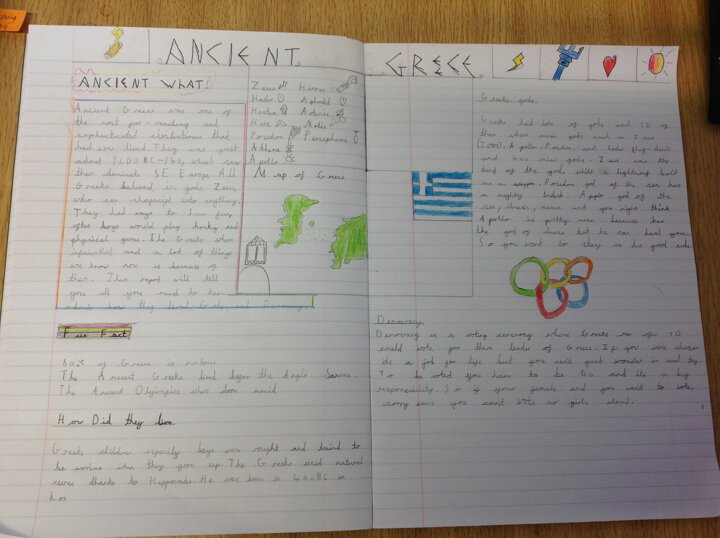 ANCIENT
ANCIENT WHAT!
Ancient Greece was one of
the most far-reaching and
sophisticated civilisations that
had ever lived. They was just
about 1200.BC-146, which saw
them dominate SE Europe. All
Greeks believed in gods Zeus,
who can shapesift into anything.
They had ways to have fun,
often boys would play
physical games. The Greeks where
influential and a lot of things
we know now is because of
them. This repot will tell
you all you need to
how they lived, Gods, and Democracy.
Zeus
Hades
Hestia
Hera
Poseidon
Athena
Apollo
Hermes
Aphrodite
Artemis
Persephone
Map of Greece
Fun Fact
80% of Greece is
The Ancient Greeks lived before the Anglo Saxons.
The Ancient Olympics where
How Did they live
Greek children especily boys were taught and traind to
be worriors when they grow up. The Greeks used natural
cures thanks to Hippocrates. He was born in 460.BC in
Kos
GRECE
Greeks gods.
Greeks had lots of gods and 12 of
them where main gods such as Zeus
Apollo, Poseidon, and Hades
and 400 mini gods. Zeus was the
king of the gods with a lightning bolt
as a weapon. Poseidon god of the sea has
a mighty trident. Apollo god of the
sun, illness, music and you might think
Apollo is pritty weak because hes
the god of illness but he can heal you.
So you want to stay on his good side.
Democracy
Democracy is a voting cerimony where Greeks
could vote for their leader of Greece. If you are chosen
its a job for life but you can't just wonder in and try.
To be voted you have to be 60 and its a big
responsibility. So if your female and you want to vote,
worry you can't vote no girls alowd.